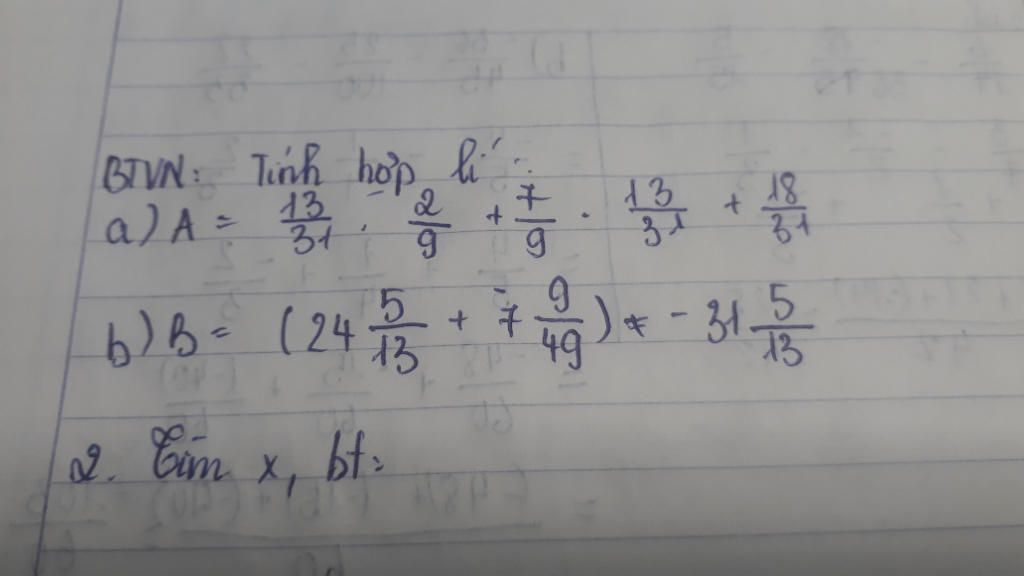 BTVN: Tính hợp lí:
a) A = 13/31 . 2/9 + 7/9 . 13/31 + 18/31
b) B = (24 5/13 + 7 9/49) - 31 5/13
2. Tìm x, bt: